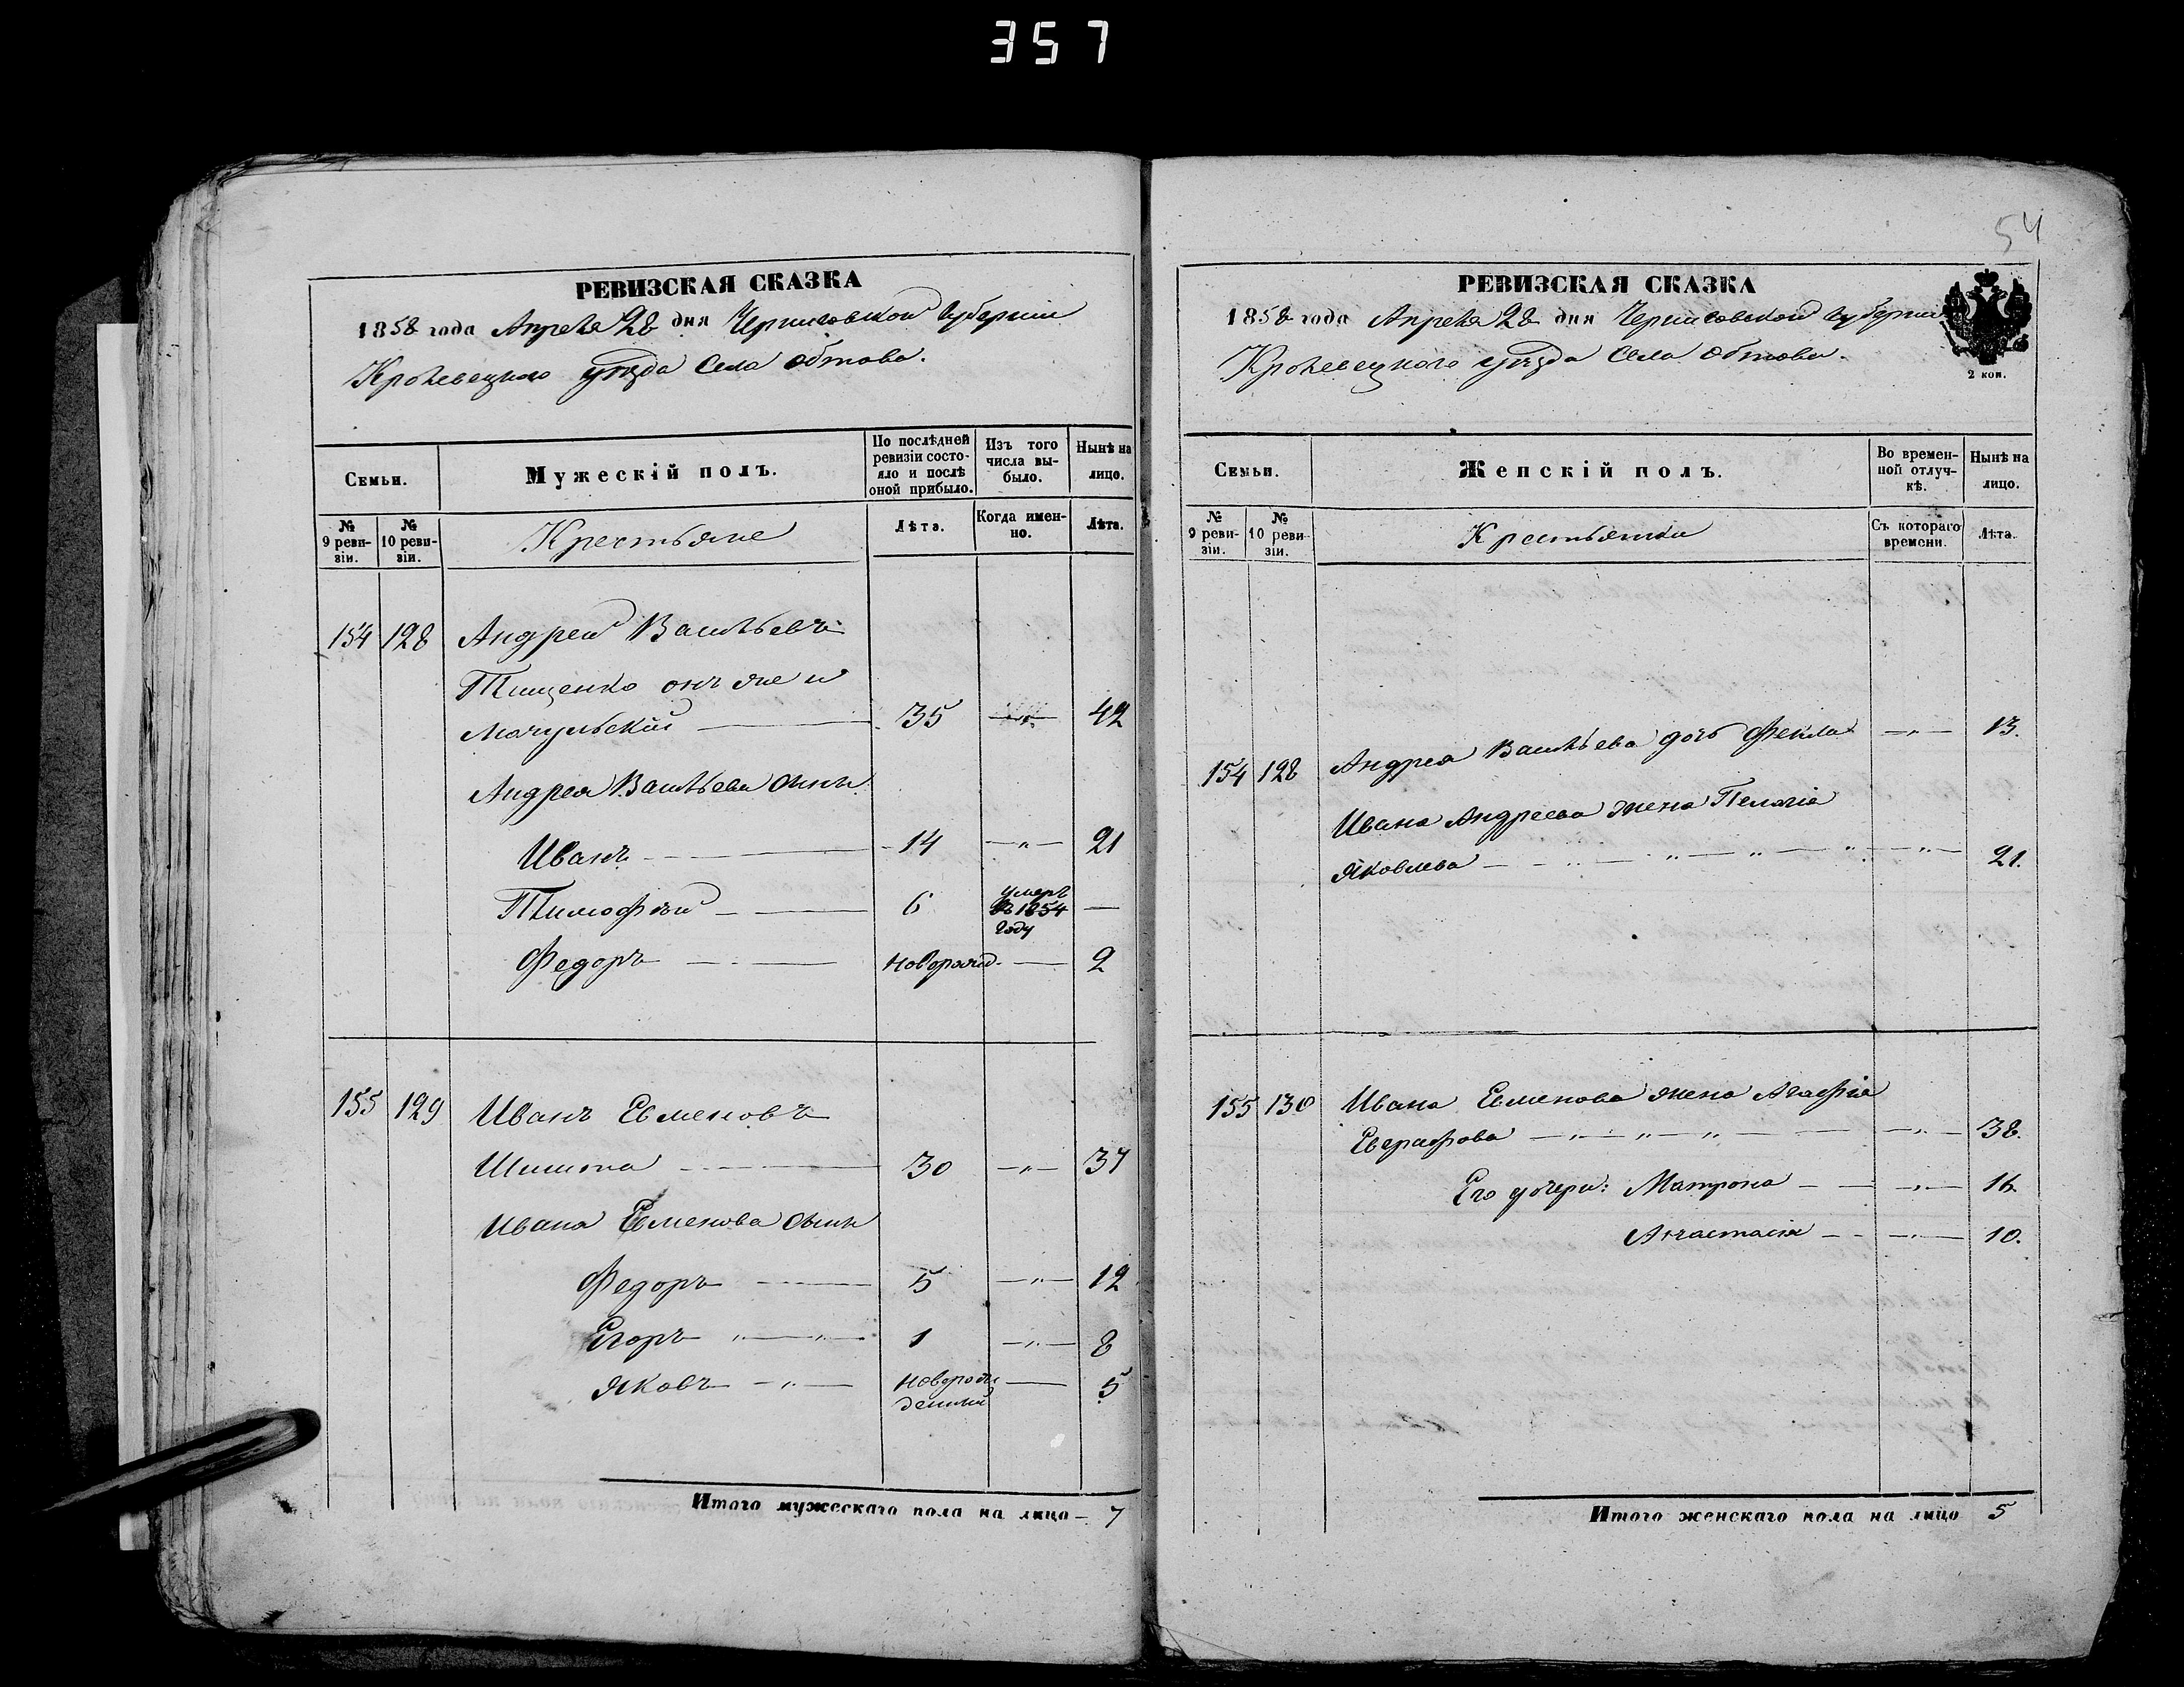 357
РЕВИЗСКАЯ СКАЗКА
1858 года Апреля 28 дня Черниговской губернии
Кролевецкого уѣзда Села Обтова.
Семьи.
Мужескiй полъ.
По послѣдней ревизiи состо-яло и послѣ оной прибыло.
Изъ того числа вы-было.
Нынѣ на лицо.
№ 9 реви-зiи.
№ 10 реви-зiи.
Крестьяне
Лѣта.
Когда имен-но.
Лѣта.
154 128 Андрей Васильевъ
Тищенко онъ же и
Мочульскiй 35 — „ — 42
Андрея Васильева сынъ
Иванъ 14 — „ — 21
Тимофѣй 6 умеръ въ 1854 году —
Федоръ новорожд. — 2
155 129 Иванъ Евменовъ
Шишона 30 — „ — 37
Ивана Евменова сынъ
Федоръ 5 — „ — 12
Егоръ 1 — „ — 8
Яковъ новорож
денный — 5
Итого мужескаго пола на лицо — 7
54
РЕВИЗСКАЯ СКАЗКА
1858 года Апреля 28 дня Черниговской губернiи
Кролевецкого уѣзда Села Обтова.
2 коп.
Семьи.
Женскiй полъ.
Во времен-ной отлуч-кѣ.
Нынѣ на лицо.
№ 9 реви-зiи.
№ 10 реви-зiи.
Крестьянки
Съ котораго времени.
Лѣта.
154 128 Андрея Васильева дочь Фекла — „ — 13.
Ивана Андреева жена Пелагiя
Яковлева — „ — 21.
155 130 Ивана Евменова жена Агафiя
Евграфова — „ — 38.
Его дочери: Матрона — „ — 16.
Анастасiя — „ — 10.
Итого женскаго пола на лицо 5